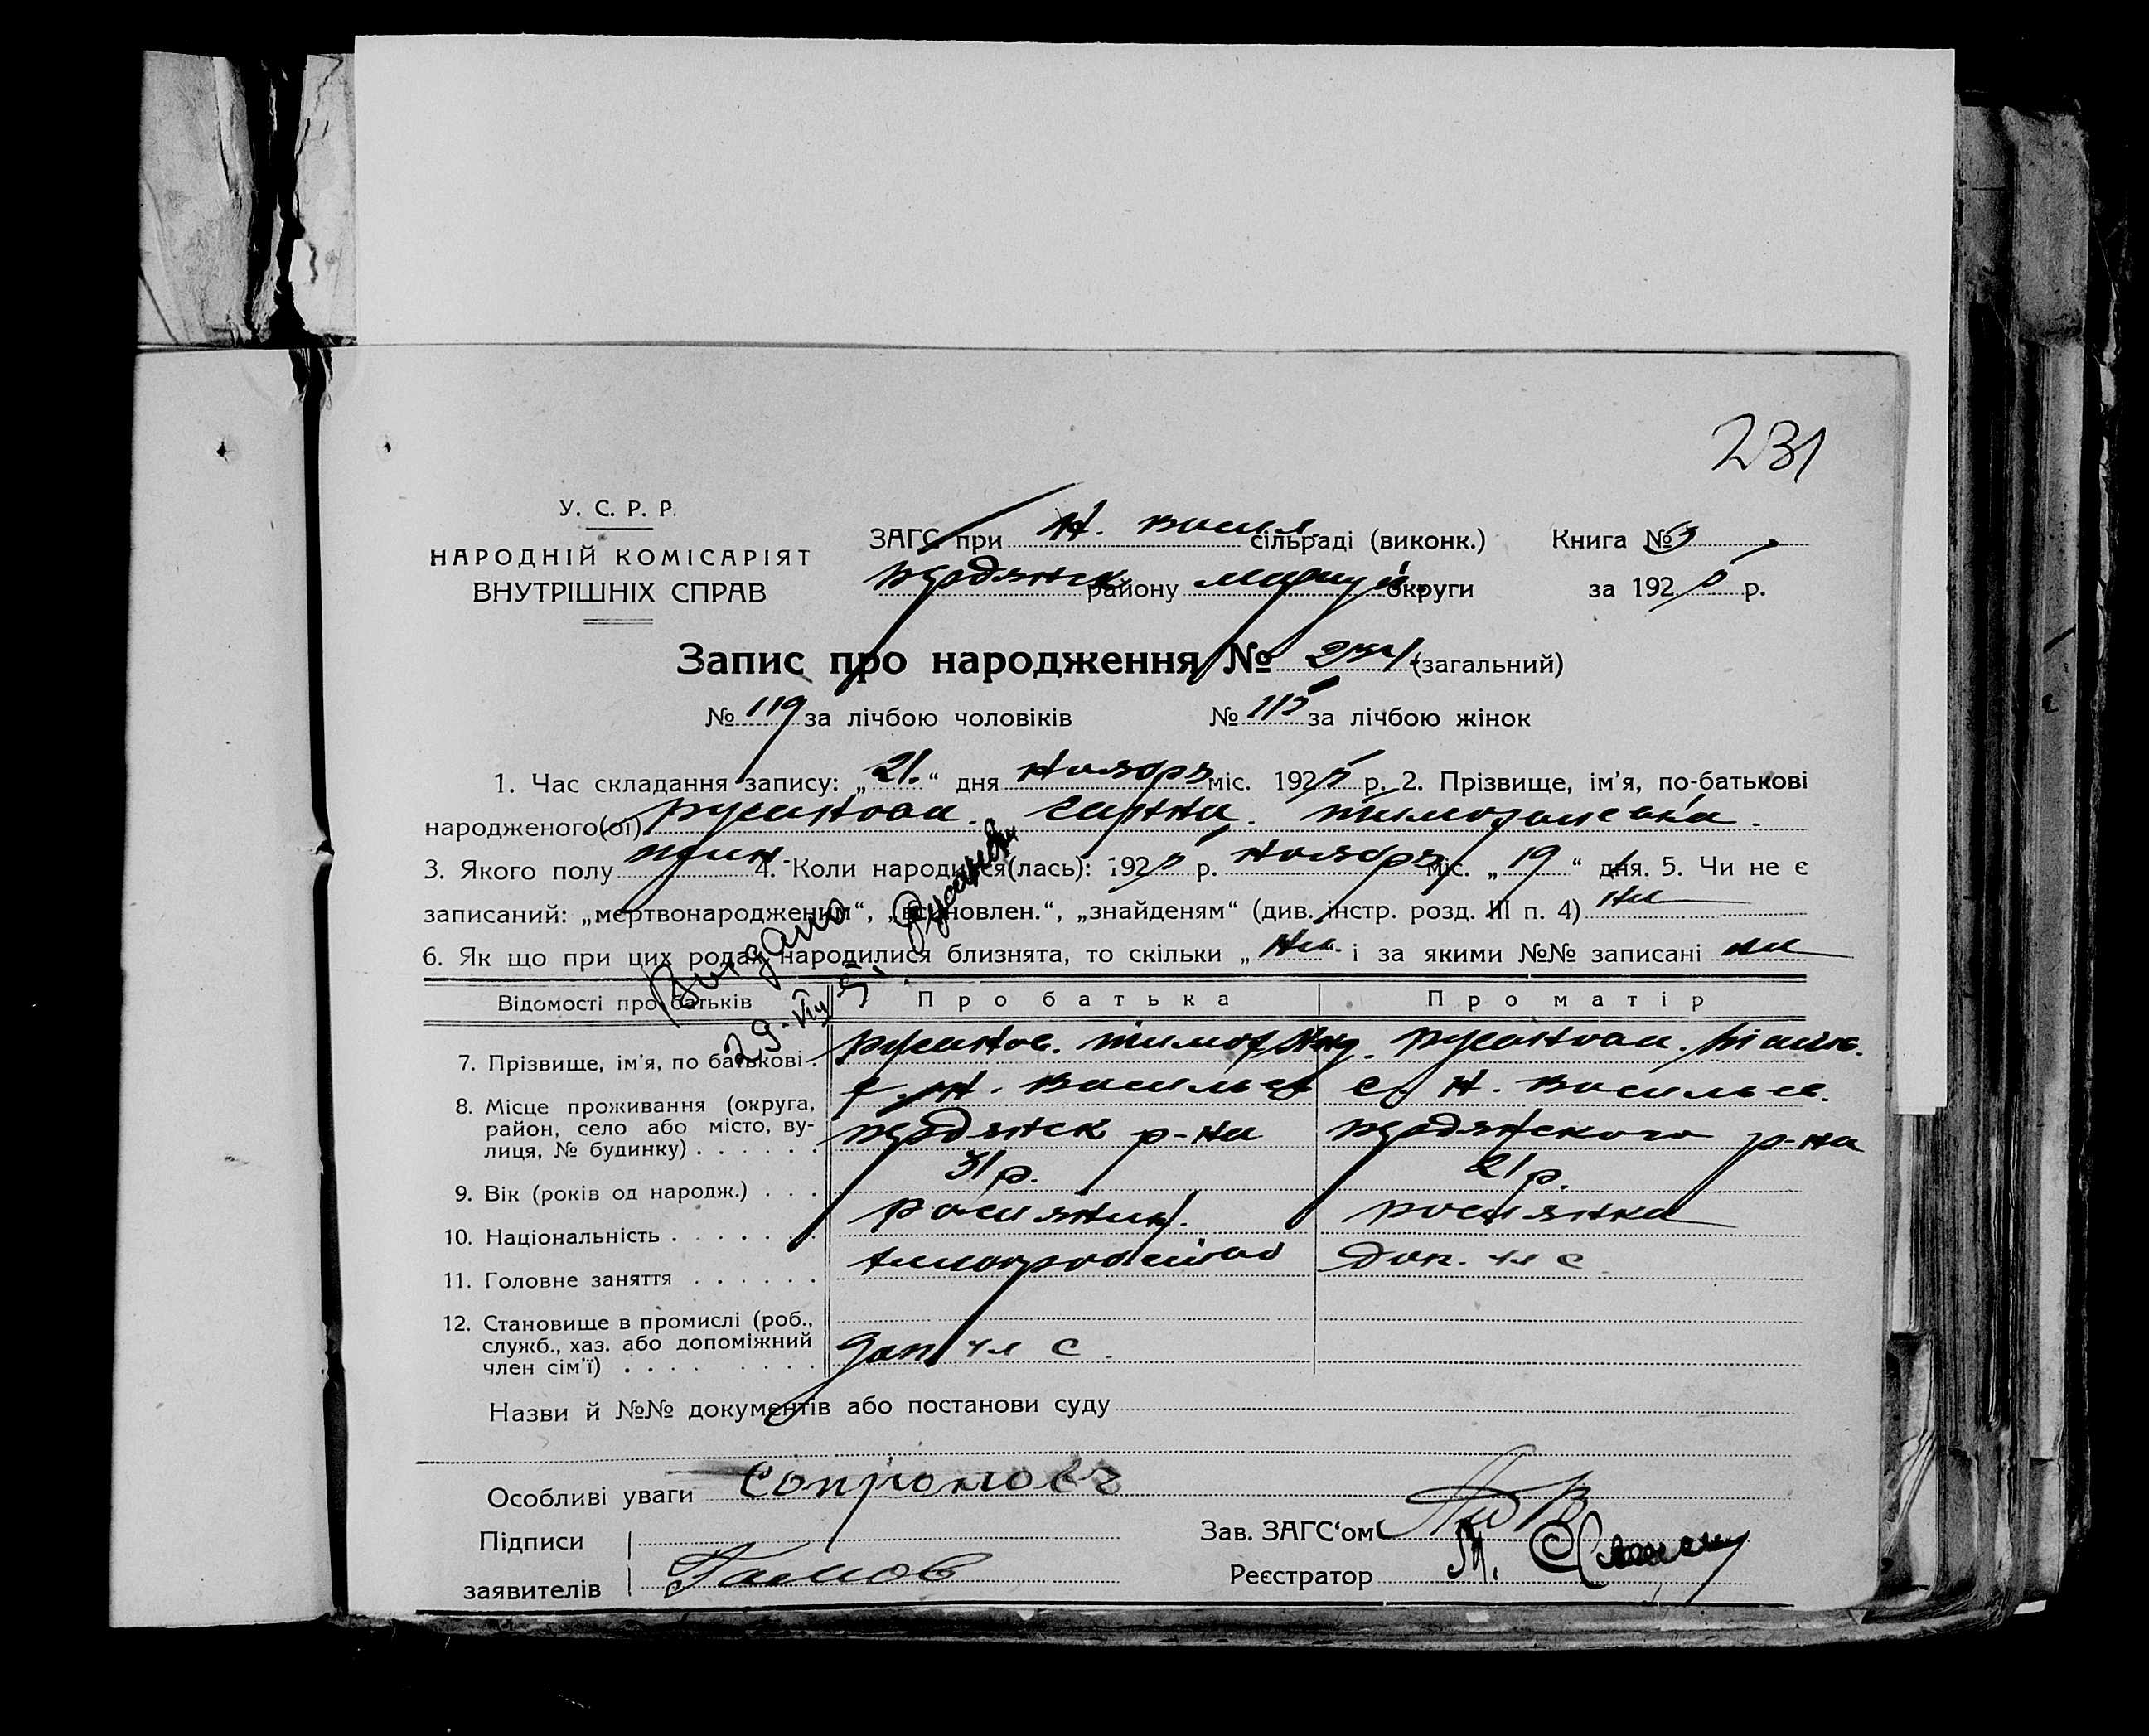 231
У. С. Р. Р.
НАРОДНІЙ КОМІСАРІЯТ
ВНУТРІШНІХ СПРАВ
ЗАГС при Н. Васил. сільраді (виконк.) Книга № 3
району округи за 1925 р.
Запис про народження № 234 (загальний)
№ 119 за лічбою чоловіків № 115 за лічбою жінок
1. Час складання запису: „21.“ дня ноября міс. 1925 р. 2. Прізвище, ім'я, по-батькові
народженого(ої) Русанова. Ганна. Тимофаиевна.
3. Якого полу 4. Коли народився(лась): 1925 р. ноября міс. „19“ дня. 5. Чи не є
записаний: „мертвонародженим“, „всиновлен.“, „знайденям“ (див. інстр. розд. III п. 4) ни
6. Як що при цих родах народилися близнята, то скільки „ни“ і за якими №№ записані ни
Видано
29-VIII 51. Русанов
Відомості про батьків Про батька Про матір
7. Прізвище, ім'я, по батькові . Русанов. Тимоф. Русанова.
8. Місце проживання (округа, район, село або місто, вулиця, № будинку) . . . . . . с. Н. Васильев с. Н. Васильев.
р-на р-на
9. Вік (років од народж.) . . . 31 р. 21 р.
10. Національність . . . . . . . росиянин. росиянка
11. Головне заняття . . . . . . хлиборобство Доп. чл с.
12. Становище в промислі (роб.,
служб., хаз. або допоміжний
член сім'ї) . . . . . . . . . Доп чл с.
Назви й №№ документів або постанови суду
Особливі уваги
Підписи Зав. ЗАГС'ом
заявителів Гамов Реєстратор М.